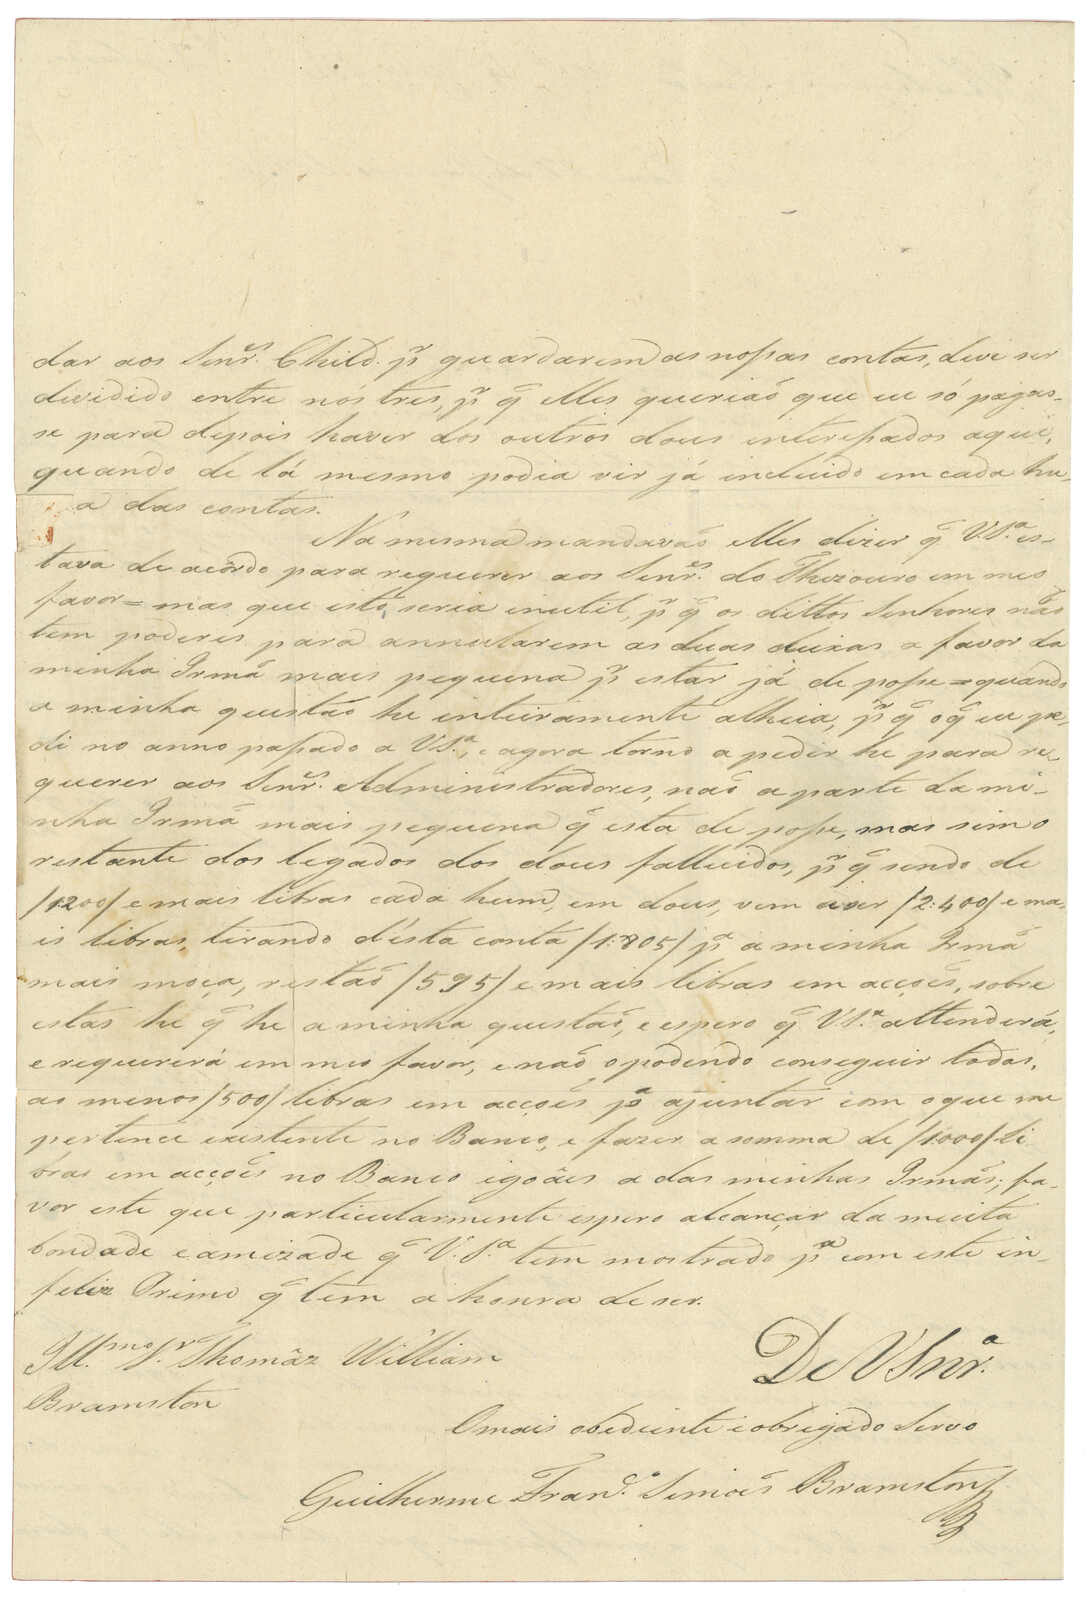 dar aos Senr.es Child. p.r guardarem as nossas contas, deve ser
dividido entre nós tres, p.r q̃ elles queriaõ que eu só pagas-
se para depois haver dos outros dous interessados aqui,
quando de lá mesmo podia vir já incluido em cada hu-
a das contas.
Na mesma mandavaõ elles dizer q̃ V.S.a es-
tava de acôrdo para requerer aos Senr.es do Thezouro em meo
favor = mas que isto seria inutil, p.r q̃ os dittos Senhores naõ
tem poderes para annullarem as duas deixas a favor da
minha Irmã mais pequena p.r estar já de posse = quando
a minha questaõ he inteiramente alheia, p.r q̃ o q̃ eu pe-
di no anno passado a V.S.a, e agora torno a pedir he para re-
querer aos Senr.es Administradores, naõ a parte da mi-
nha Irmã mais pequena q̃ esta de posse, mas sim o
restante dos legados dos dous fallecidos, p.r q̃ sendo de
/1200/ e mais libras cada hum, em dous, vem a ser /2:400/ e ma-
is libras, tirando d'ésta conta /1:805/ p.a a minha Irmã
mais moça, restaõ /595/ e mais libras em acçoẽs, sobre
estas he q̃ he a minha questaõ, e espero q̃ V.S.a attenderá,
e requererá em meo favor, e naõ o podendo conseguir todas,
ao menos /500/ libras em acçoẽs p.a ajuntar com o que me
pertence existente no Banco, e fazer a somma de /1000/ li
bras em acçoẽs no Banco igoâes a das minhas Irmãs; fa-
vor este que particularmente espero alcançar da muita
bondade e amizade q̃ V.S.a tem mostrado p.a com este in-
feliz Primo q̃ tem a honra de ser.
Ill.mo S.r Thomâz William
Bramston
De V Snr.a
O mais obediente e obrigado Servo
Guilherme Fran.co Simoẽs Bramston